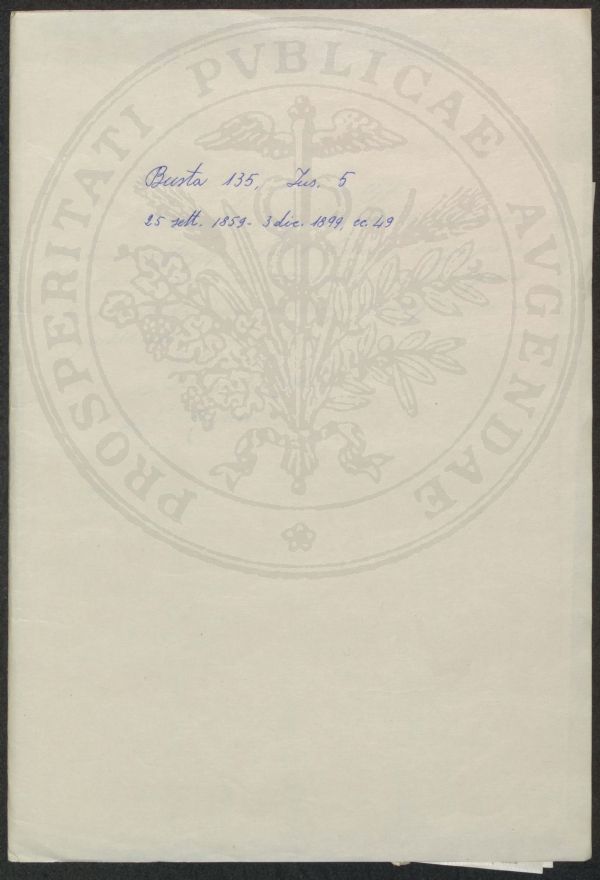 PROSPERITATI PVBLICAE AVGENDAE
Busta 135, Ins. 5
25 sett. 1859 - 3 dic. 1899, cc. 49